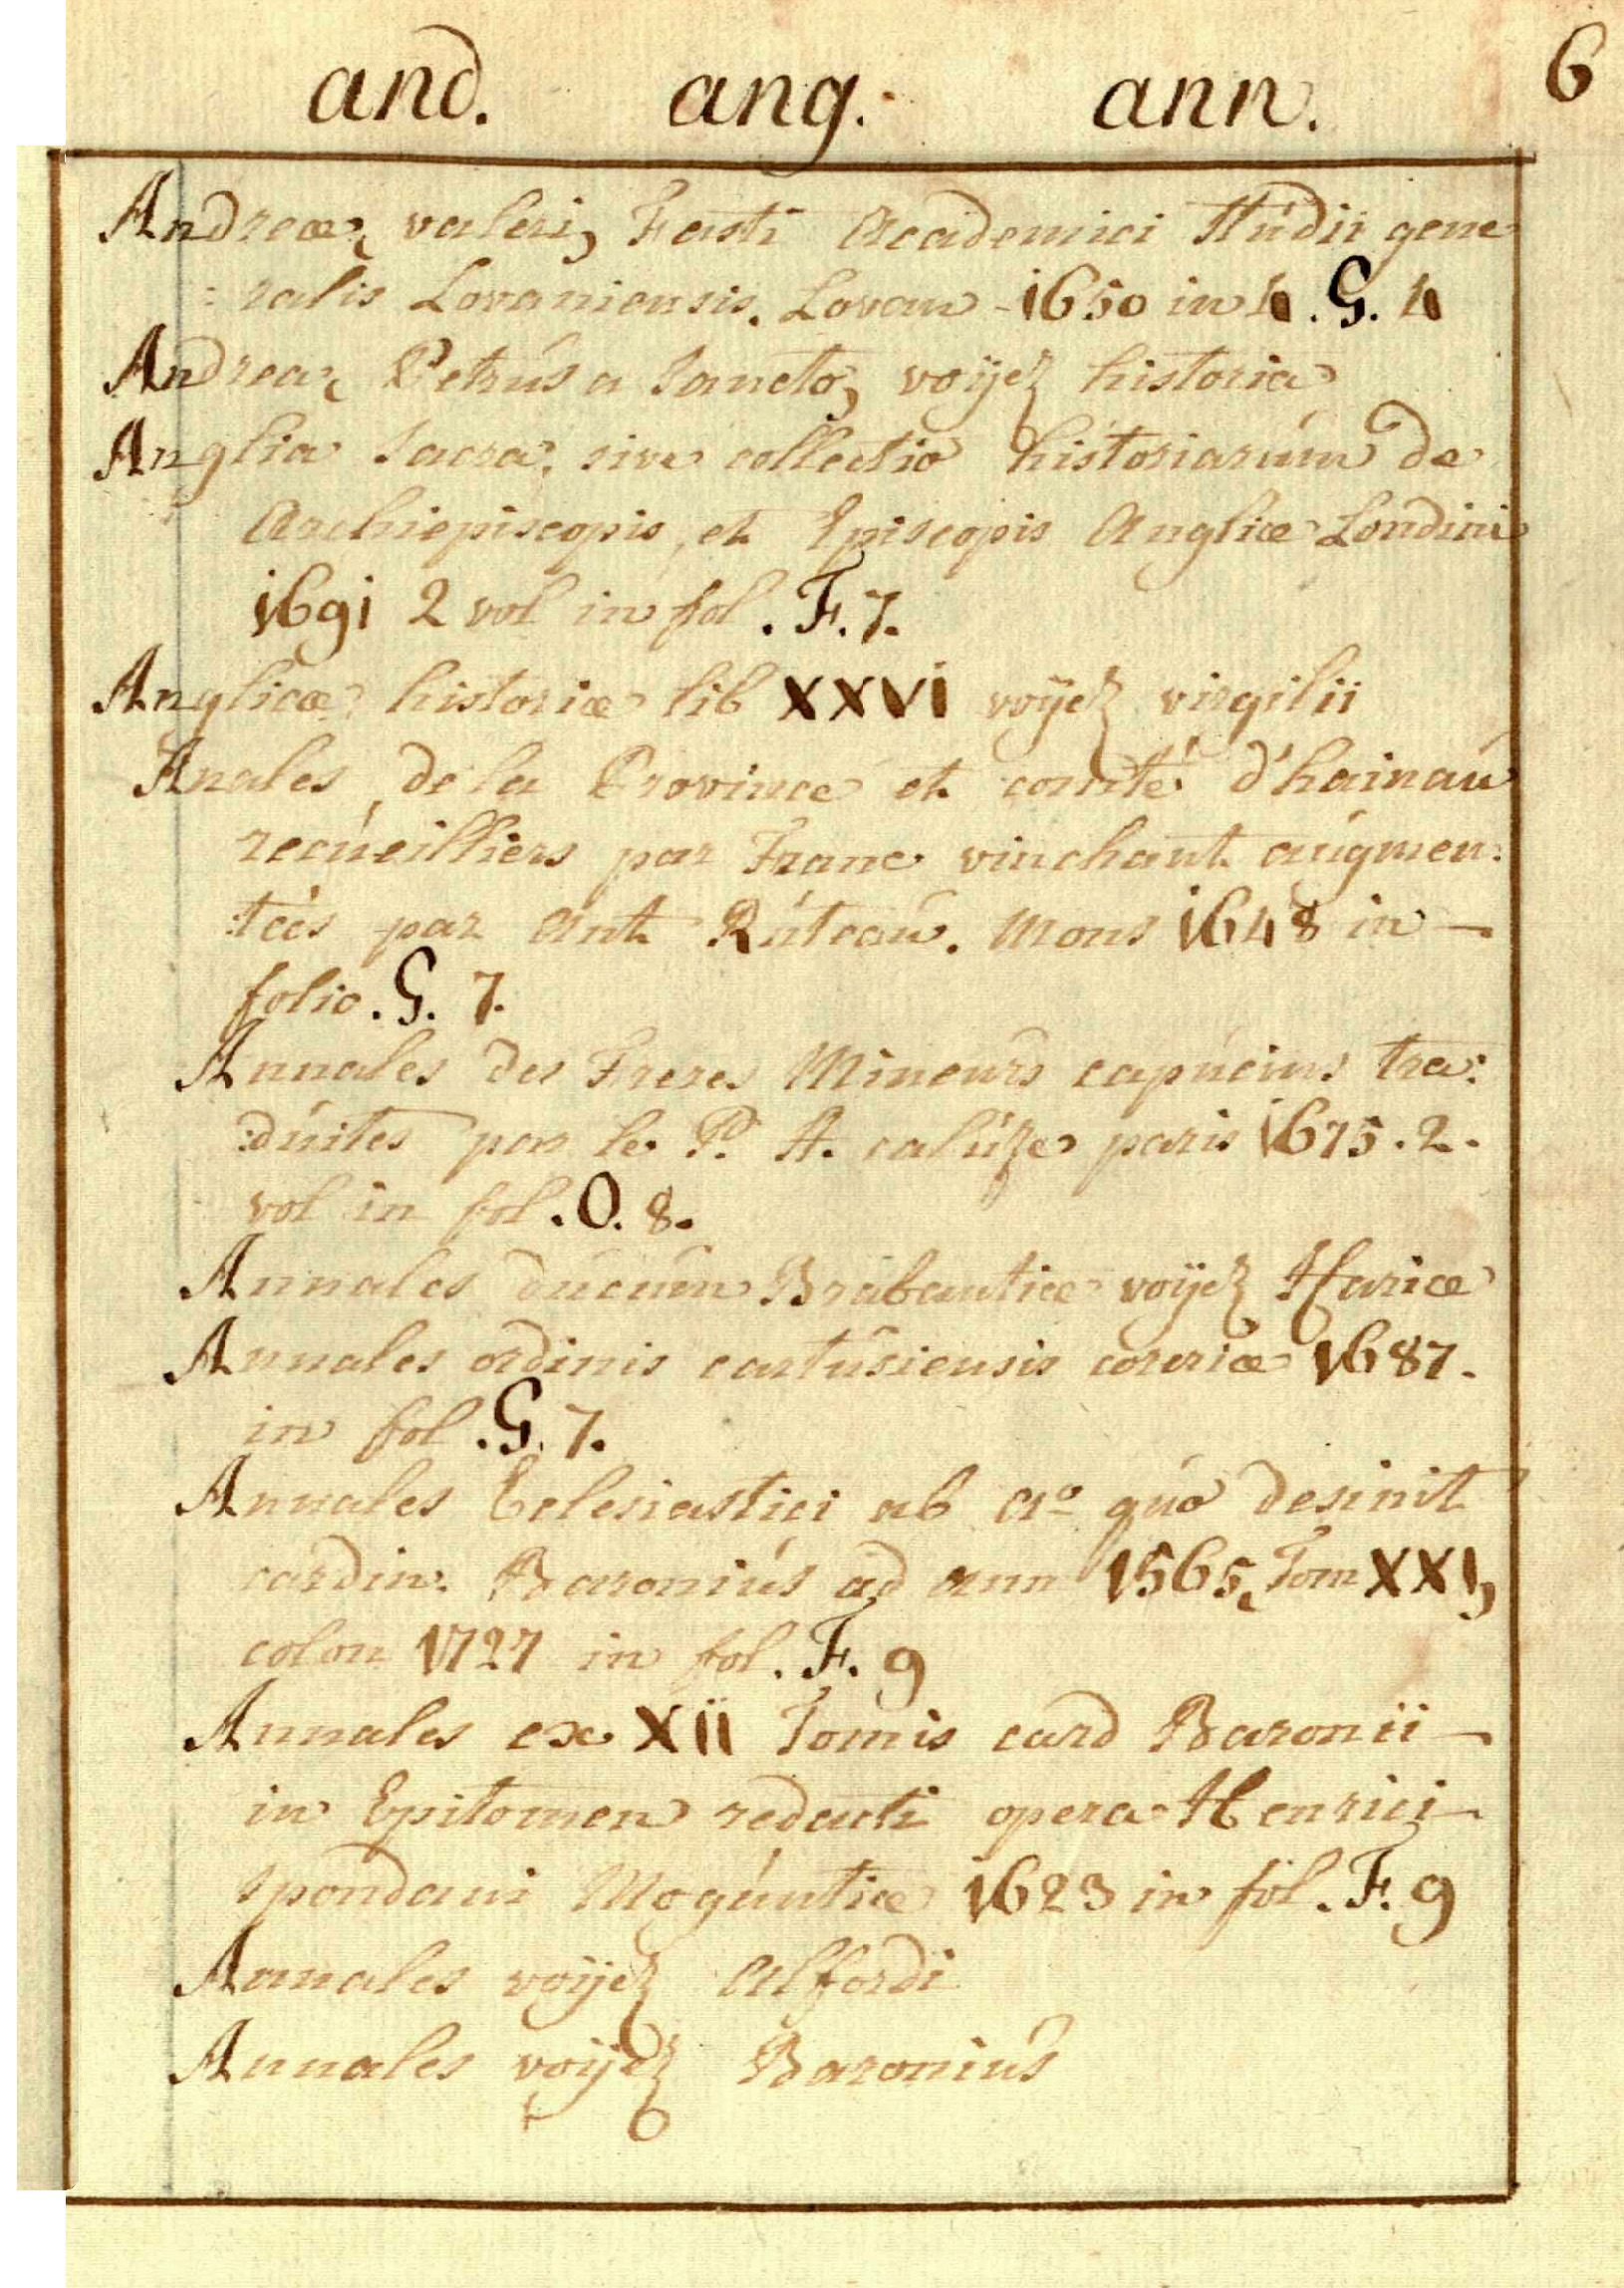 and. ang. ann. 6
Andreæ, valeri, Fasti Academici Studii gene
: ralis Lovaniensis. Lovan - 1650 in 4. G. 4
Andrea, Petrus a Sancto, voÿez historia
Anglia Sacra. sive collectio historiarum de
Archiepiscopis, et Episcopis Angliæ Londini
1691 2 vol in fol. F. 7.
Anglicæ historiæ lib XXVI voÿez virgilii
Anales de la Province et comté d'hainau
recueilliers par Franc vinchant augmen:
:tées par Ant Ruteau. Mons 1648 in —
folio. G. 7.
Annales des Freres Mineurs capucins tra:
:duites par le P. A. caluze paris 1675. 2.
vol in fol. O. 8.
Annales ducum Brabantiæ voÿez Haræ
Annales ordinis cartusiensis correriæ 1687.
in fol. G. 7.
Annales Eclesiastici ab Aº quo desinit
cardin. Baronius ad ann 1565, Tom XXI,
colon 1727 in fol. F. 9
Annales ex XII Tomis card Baronii —
in Epitomen redacti opera Henrici —
Spondani Moguntiæ 1623 in fol. F. 9
Annales voÿez Alfordi
Annales voÿez Baronius